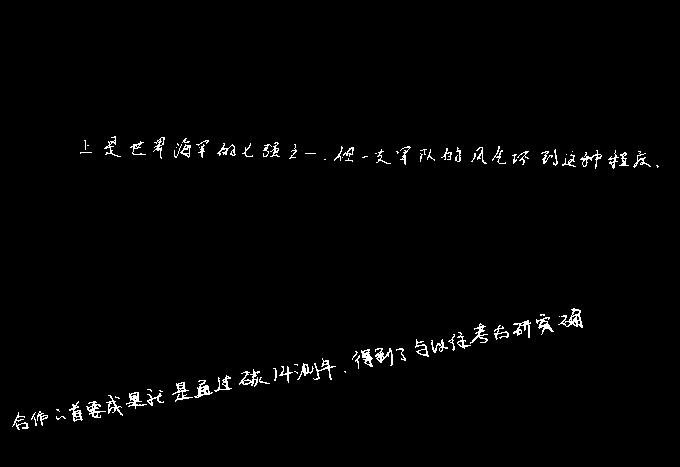 上是世界海军的七强之一.但一支军队的风气坏到这种程度.
合作的首要成果就是通过碳14测年.得到了与以往考古研究确